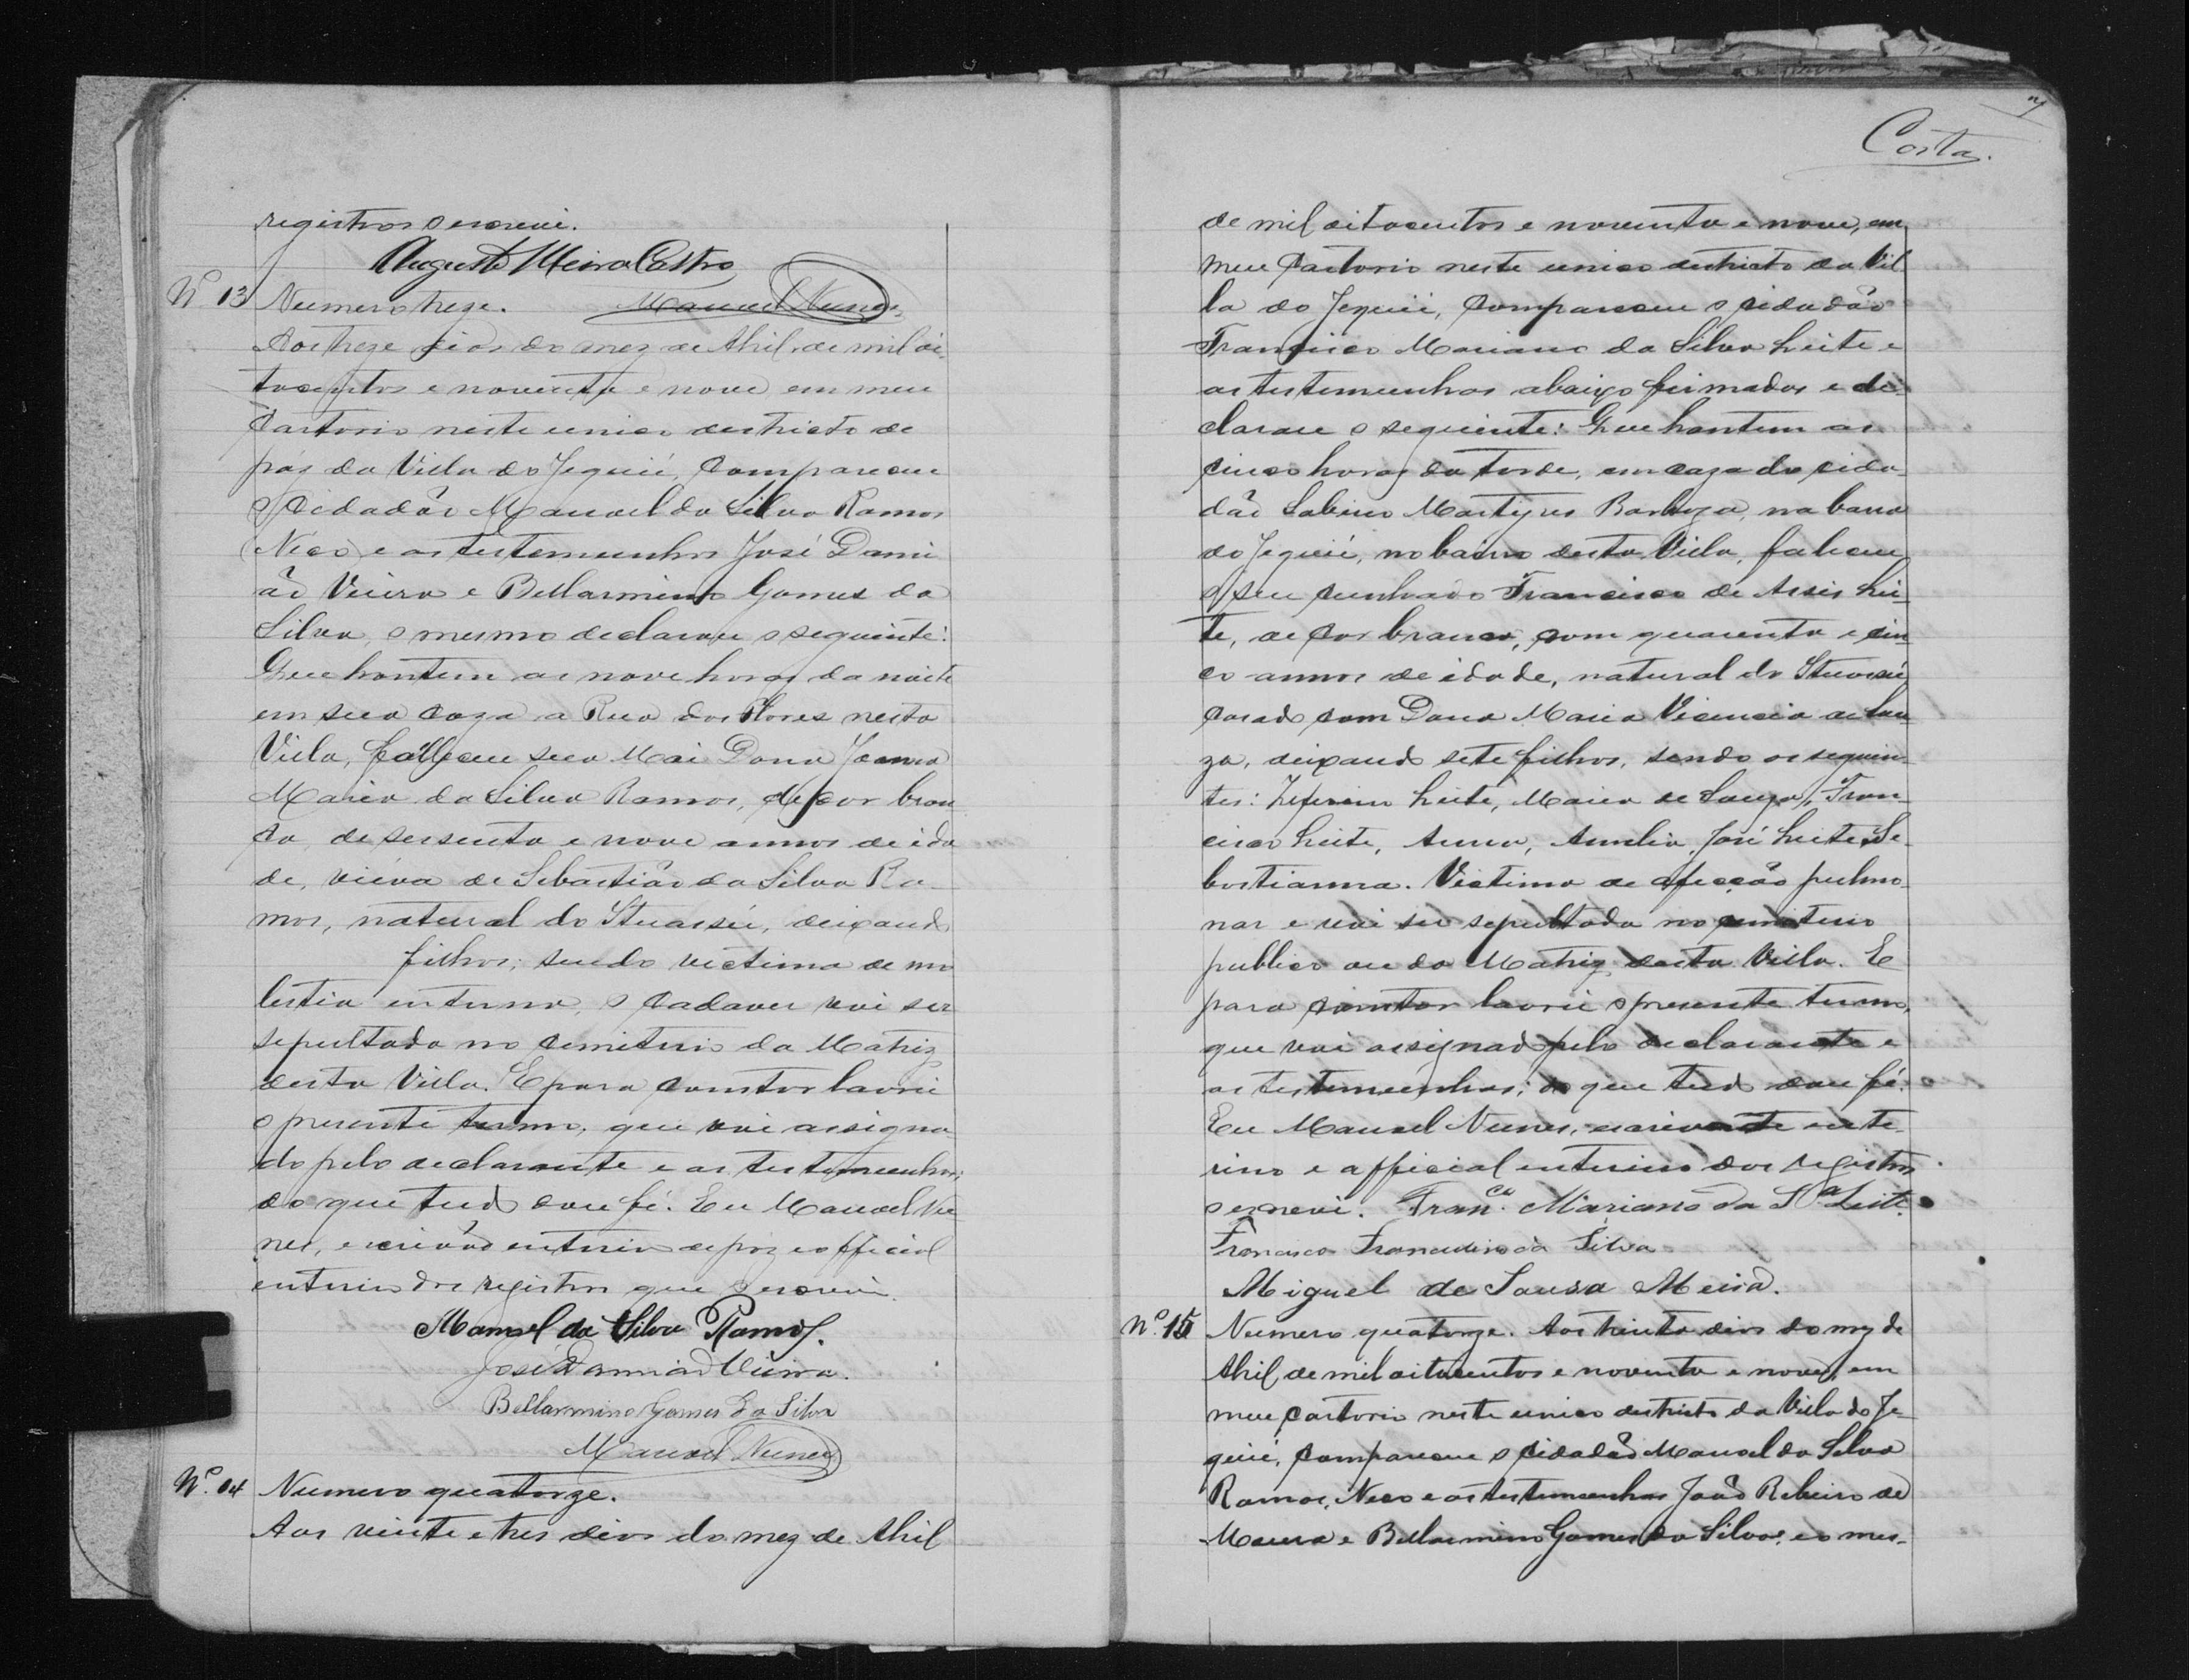 registros o escrevi.
Augusto Meira Castro
Nº 13 Numero treze. Manoel Nunes
Aos treze dias do mez de Abril, de mil oi-
tocentos e noventa e nove em meu
Cartorio neste unico destricto de
páz da Villa do Jequié, Compareceu
o Cidadão Manoel da Silva Ramos
(Néco) e as testemunhas José Dami
ão Vieira e Bellarmino Gomes da
Silva, o mesmo declarou o seguinte:
Que hontem as nove horas da noite
em sua Caza a Rua das Flores nesta
Villa, falleceu sua Mai Dona Joanna
Maria da Silva Ramos, de Cor bran
ca, de sessenta e nove annos de ida
de, viuva de Sebastião da Silva Ra-
mos, natural do Ituassú, deixando
filhos; sendo victima de mo
lestia enterna, o Cadaver vai ser
sepultado no Cemiterio da Matriz
desta Villa. E para Constar lavrei
o presente termo, que vai assigna-
do pelo declarante e as testemunhas;
do que tudo dou fé. Eu Manoel Nu
nes, escrivão enterino de páz e official
enterino dos registros que o escrevi.
Manoel da Silva Ramos.
José Damião Vieira.
Bellarmino Gomes da Silva
Manoel Nunes
Nº. 14 Numero quatorze.
Aos vinte e tres dias do mez de Abril
Costa.
de mil oitocentos e noventa e nove, em
meu Cartorio neste unico destricto da Vil
la do Jequié, Compareceu o cidadão
Francisco Mariano da Silva Leite e
as testemunhas abaixo firmadas e de-
clarou o seguinte: Que hontem as
cinco horas da tarde, em caza do cida-
dão Sabino Martyres Barboza, na barra
do Jequié, no bairro desta Villa, faleceu
o seu cunhado Francisco de Assis Lei-
te, de Cor branca, com quarenta e cin
co annos de idade, natural do Ituassú,
Casado com Dona Maria Vicencia de Sou-
za, deixando sete filhos, sendo os seguin-
tes: Zeferino Leite, Maria de Souza, Fran-
cisco Leite, Anna, Amelia, José Leite, Se-
bastianna. Victima de afecção pulmo-
nar e vai ser sepultado no cemiterio
publico ou da Matriz desta Villa. E
para constar lavrei o presente termo,
que vai assignado pelo declarante e
as testemunhas; do que tudo dou fé.
Eu Manoel Nunes, escrevente ente-
rino e official enterino dos registros
o escrevi. Fran.co Mariano da S.a Leite
Francisco Francelino da Silva
Miguel de Sousa Meira.
Nº. 15 Numero quatorze. Aos trinta dias do mez de
Abril de mil oitocentos e noventa e nove, em
meu Cartorio neste unico destricto da Villa do Je-
quié, Compareceu o Cidadão Manoel da Silva
Ramos, Neco e as testemunhas João Ribeiro de
Moura e Bellarmino Gomes da Silva; e o mes-